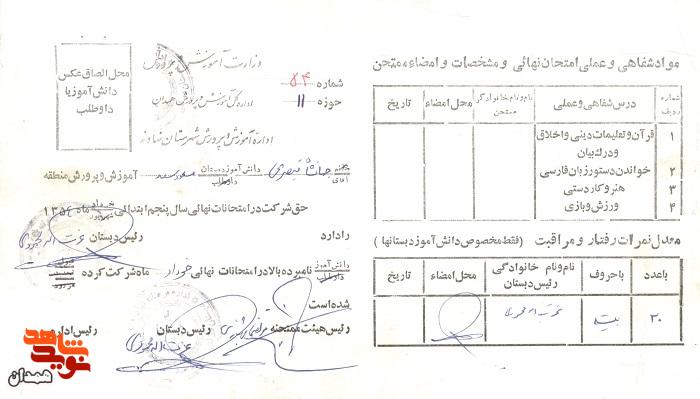 موادشفاهی و عملی امتحان نهائی و مشخصات و امضاء ممتحن
شماره ردیف
درس شفاهی و عملی
نام و نام خانوادگی ممتحن
محل امضاء
تاریخ
۱ قرآن و تعلیمات دینی و اخلاق و درک بیان
۲ خواندن دستور زبان فارسی
۳ هنر و کاردستی
۴ ورزش و بازی
معدل نمرات رفتار و مراقبت (فقط مخصوص دانش آموز دبستانها)
باعدد
باحروف
نام و نام خانوادگی رئیس دبستان
محل امضاء
تاریخ
۲۰
بیست
وزارت آموزش و پرورش
محل الصاق عکس
دانش آموز یا
داوطلب
شماره ۵۴
اداره کل آموزش و پرورش همدان
حوزه ۱۱
اداره آموزش و پرورش شهرستان نهاوند
دانش آموز دبستان
داوطلب
آموزش و پرورش منطقه
حق شرکت در امتحانات نهائی سال پنجم ابتدائی خرداد ماه
را دارد
رئیس دبستان
دانش آموز
داوطلب
نامبرده بالا در امتحانات نهائی خرداد ماه شرکت کرده
شده است
رئیس هیئت ممتحنه
رئیس دبستان
رئیس اداره
نوید شاهد
همدان